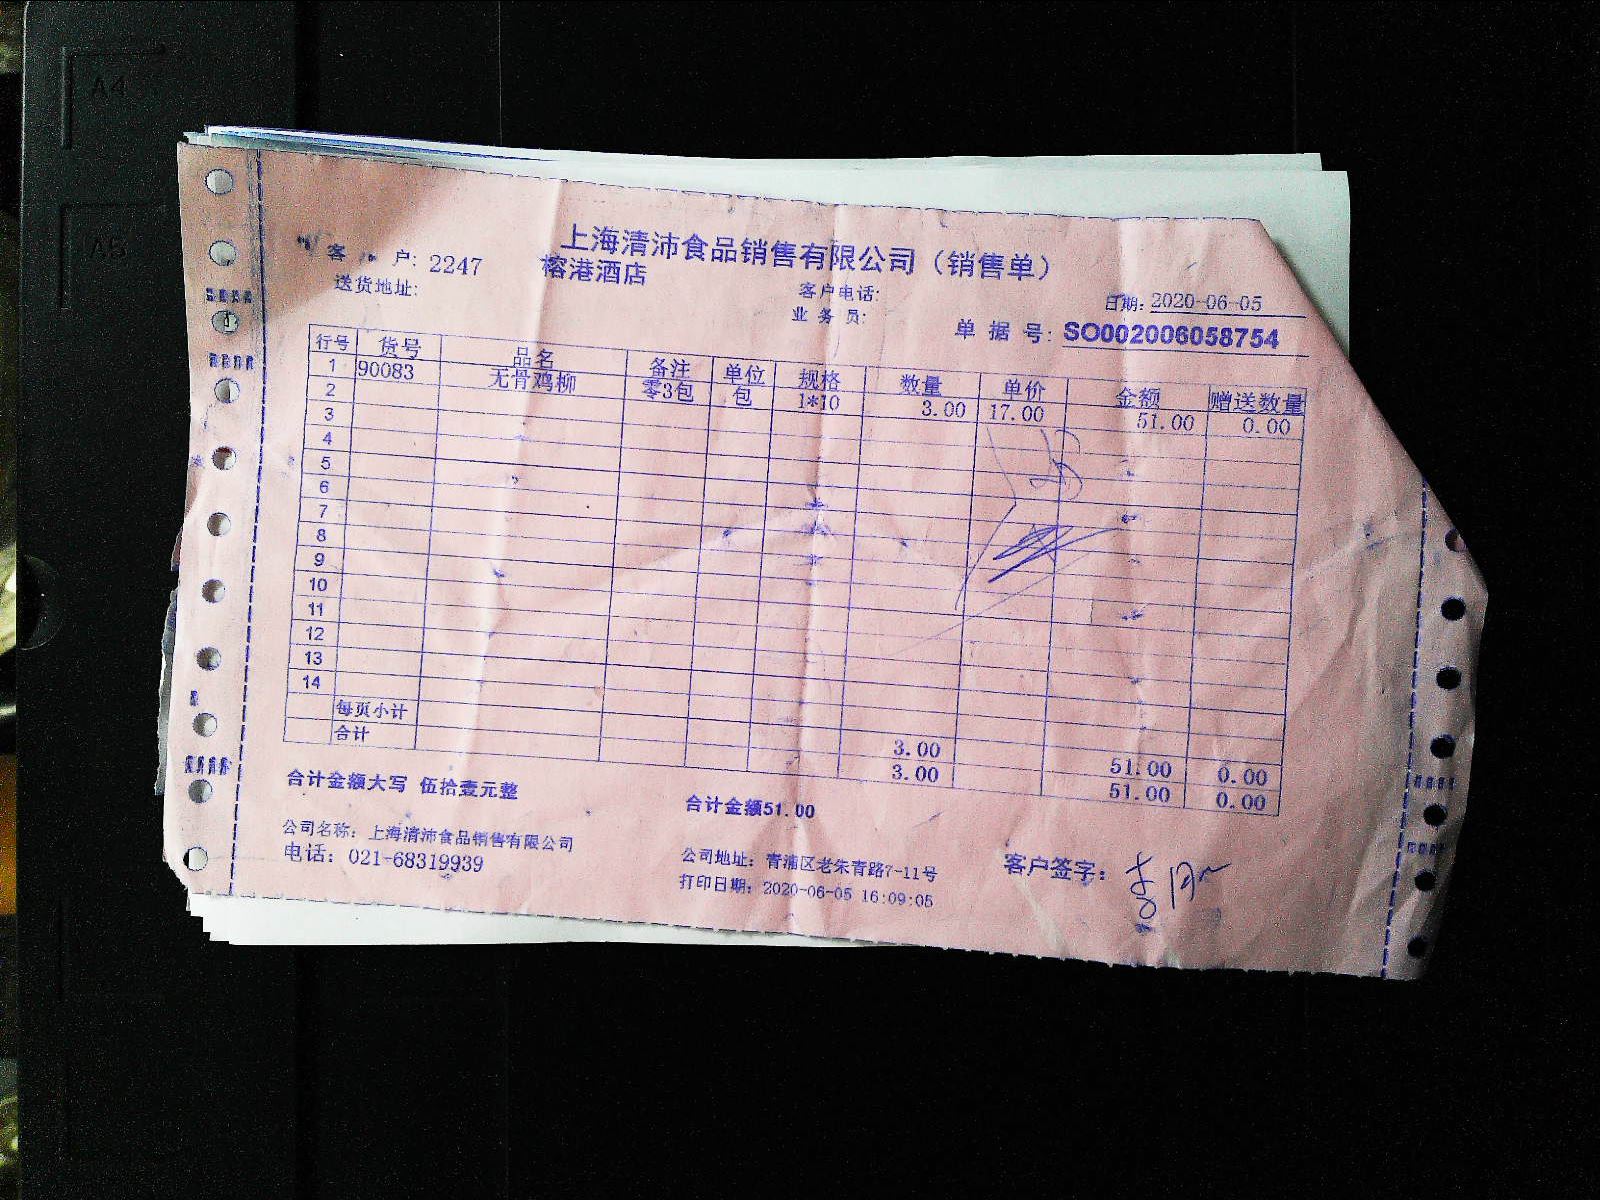 A4
A5
上海清沛食品销售有限公司（销售单）
客 户: 2247 榕港酒店
送货地址:
客户电话:
业 务 员:
日期: 2020-06-05
单 据 号: SO002006058754
行号 货号 品名 备注 单位 规格 数量 单价 金额 赠送数量
1 90083 无骨鸡柳 零3包 包 1*10 3.00 17.00 51.00 0.00
2
3
4
5
6
7
8
9
10
11
12
13
14
每页小计 3.00 51.00 0.00
合计 3.00 51.00 0.00
合计金额大写 伍拾壹元整 合计金额51.00
公司名称: 上海清沛食品销售有限公司 公司地址: 青浦区老朱青路7-11号 客户签字:
电话: 021-68319939 打印日期: 2020-06-05 16:09:05